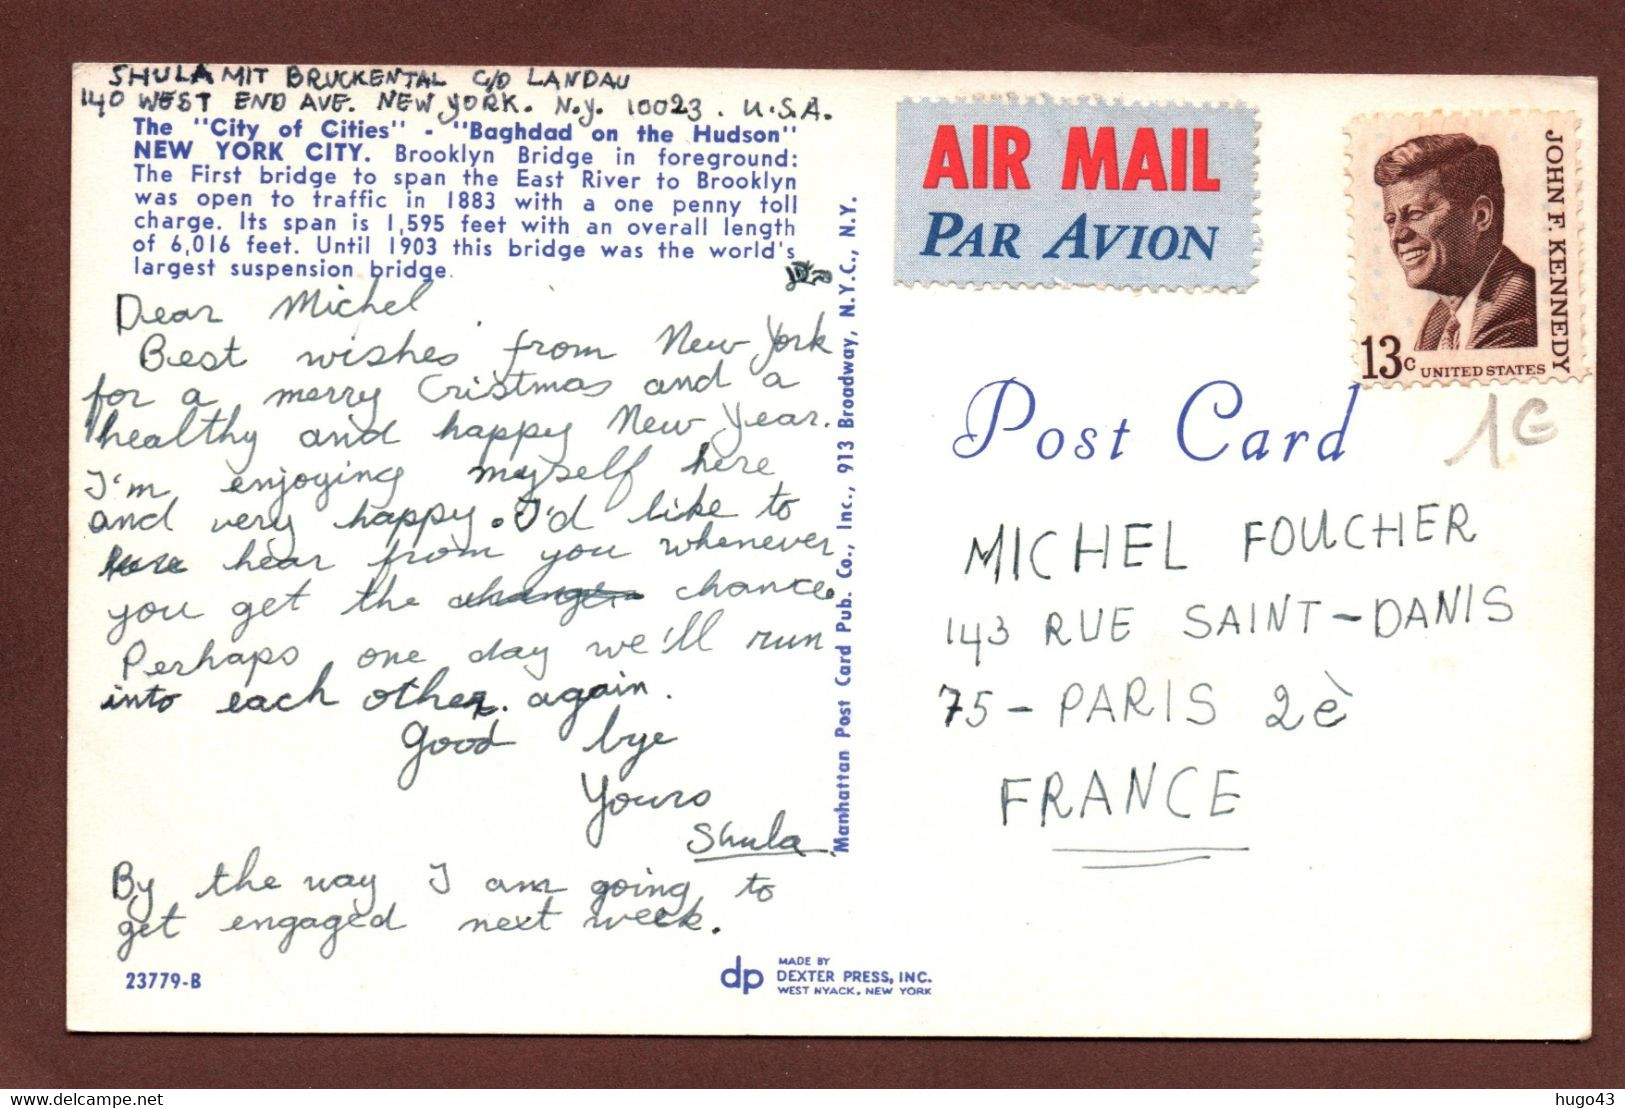 SHULAMIT BRUCKENTAL C/O LANDAU
140 WEST END AVE. NEW YORK. N.Y. 10023. U.S.A.
The "City of Cities" - "Baghdad on the Hudson"
NEW YORK CITY. Brooklyn Bridge in foreground:
The First bridge to span the East River to Brooklyn
was open to traffic in 1883 with a one penny toll
charge. Its span is 1,595 feet with an overall length
of 6,016 feet. Until 1903 this bridge was the world's
largest suspension bridge.
Dear Michel
Best wishes from New York
for a merry Cristmas and a
healthy and happy New Year.
I'm enjoying myself here
and very happy. I'd like to
hear from you whenever
you get the change chance.
Perhaps one day we'll run
into each other again.
Good bye
Yours
Shula
By the way I am going to
get engaged next week.
23779-B
dp
MADE BY
DEXTER PRESS, INC.
WEST NYACK, NEW YORK
Manhattan Post Card Pub. Co., Inc., 913 Broadway, N.Y.C., N.Y.
AIR MAIL
PAR AVION
JOHN F. KENNEDY
13c UNITED STATES
Post Card
1€
MICHEL FOUCHER
143 RUE SAINT-DANIS
75-PARIS 2è
FRANCE
delcampe.net
hugo43